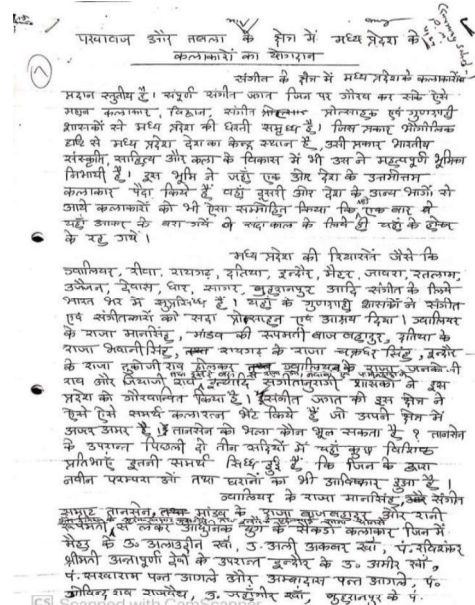 पखावाज और तबला के क्षेत्र में मध्य प्रदेश के
कलाकारों का योगदान
संगीत के क्षेत्र में मध्य प्रदेश के कलाकारों का
प्रदान स्तुतीय है। संपूर्ण संगीत जगत जिन पर गौरव कर सके ऐसे
महान कलाकार, विद्वान, संगीत प्रोत्साहक एवं गुणग्राही
शासकों से मध्य प्रदेश की धरती समृध्ध है। जिस प्रकार भौगोलिक
दृष्टि से मध्य प्रदेश देश का केन्द्र स्थान है, उसी प्रकार भारतीय
संस्कृति, साहित्य और कला के विकास में भी उस ने महत्वपूर्ण भूमिका
निभायी है। इस भूमि ने जहाँ एक ओर देश के उत्तमोत्तम
कलाकार पैदा किये हैं वहाँ दूसरी ओर देश के अन्य भागों से
आये कलाकारों को भी ऐसा सम्मोहित किया कि एक बार वे
यहाँ आकर के बस गये वे सदा काल के लिये ही यहाँ के होकर
के रह गये।
मध्य प्रदेश की रियासतें जैसे कि
ग्वालियर, रीवा, रायगढ़, दतिया, इन्दौर, मैहर, जावरा, रतलाम,
उज्जैन, देवास, धार, सागर, बुरहानपुर आदि संगीत के लिये
भारत भर में सुप्रसिध्ध हैं। यहाँ के गुणग्राही शासकों ने संगीत
एवं संगीतकारों को सदा प्रोत्साहन एवं आश्रय दिया। ग्वालियर
के राजा मानसिंह, मांडव की रुपमती बाज बहादुर, दतिया के
राजा भवानीसिंह, रायगढ के राजा चक्रधर सिंह, इन्दौर
के राजा तुकोजी राव होलकर ग्वालियर के राजा जनकोजी
राव और जियाजी राव इत्यादि संगीतानुरागी शासकों ने इस
प्रदेश को गौरवान्वित किया है। संगीत जगत को इस क्षेत्र ने
ऐसे ऐसे समर्थ कलारत्न भेंट किये हैं जो अपने क्षेत्र में
अजर अमर हैं। तानसेन को भला कौन भूल सकता है? तानसेन
के उपरान्त पिछली दो तीन सदियों में यहाँ कुछ विशिष्ट
प्रतिभाएं इतनी समर्थ सिध्ध हुई हैं कि जिन के द्वारा
नवीन परम्परा ओं तथा घरानों का भी आविष्कार हुआ है।
ग्वालियर के राजा मानसिंह, संगीत
सम्राट तानसेन, मांडव के राजा बाजबहादुर और रानी
रुपमती से लेकर आधुनिक युग के सेंकडों कलाकार जिन में
मैहर के उ. अलाउद्दीन खाँ, उ. अली अकबर खाँ, पं. रविशंकर
श्रीमती अन्नपूर्णा देवी के उपरान्त इन्दौर के उ. अमीर खाँ,
पं. सखाराम पन्त आगले और अम्बादास पन्त आगले, पं.
गोविन्द राव राजवैद्य, उ. जहांगीर खाँ, बुरहानपुर के पं.
CS Scanned with CamScanner